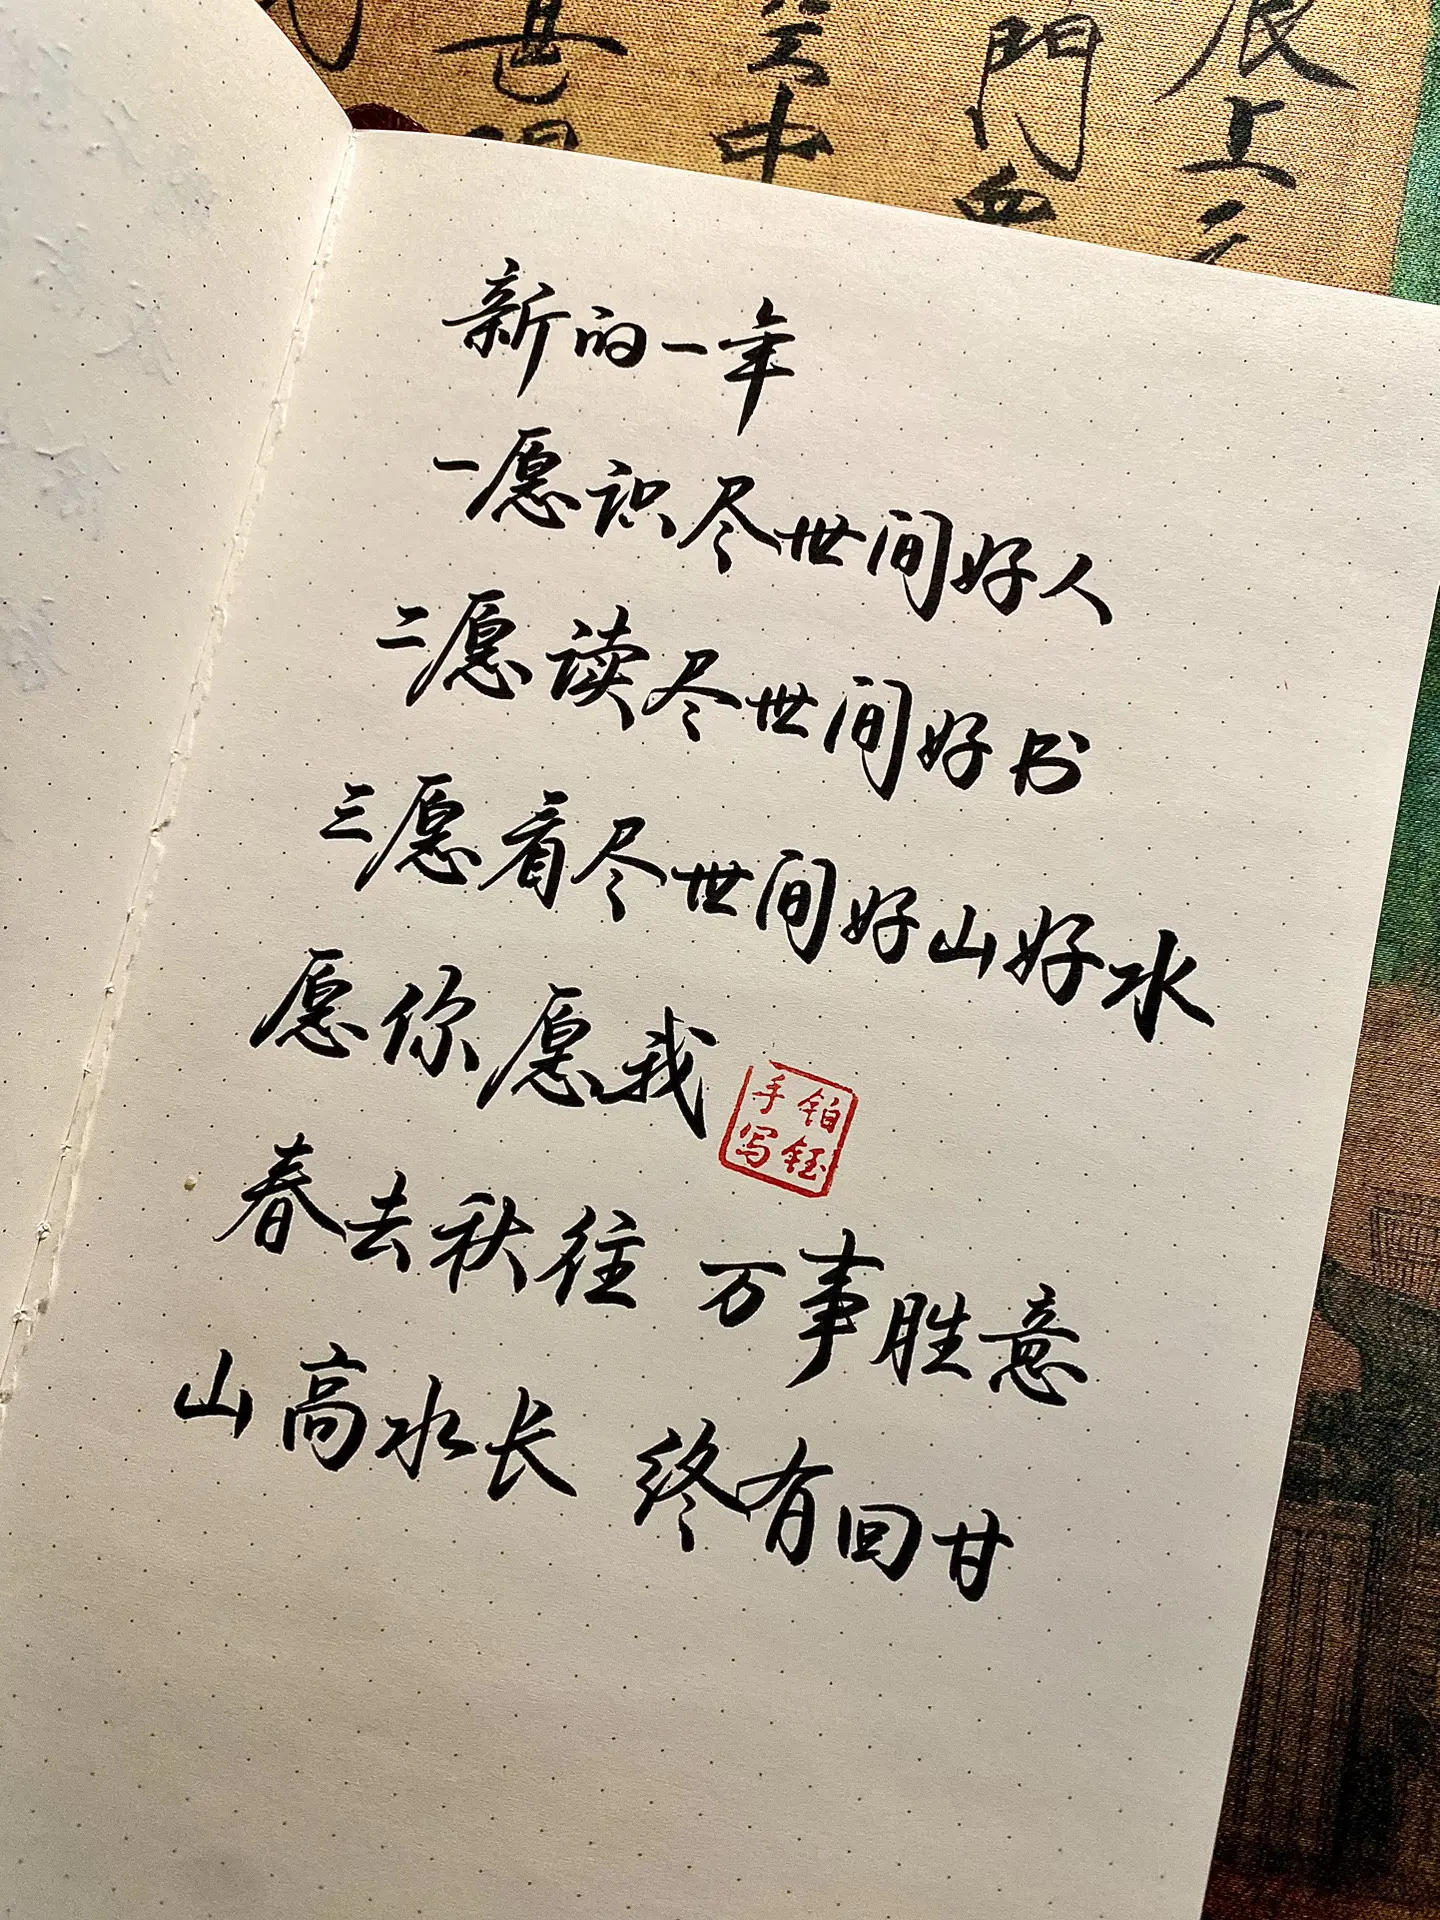 新的一年
一愿识尽世间好人
二愿读尽世间好书
三愿看尽世间好山好水
愿你愿我
铂钰
手写
春去秋往 万事胜意
山高水长 终有回甘
辰上元
門
中
甚